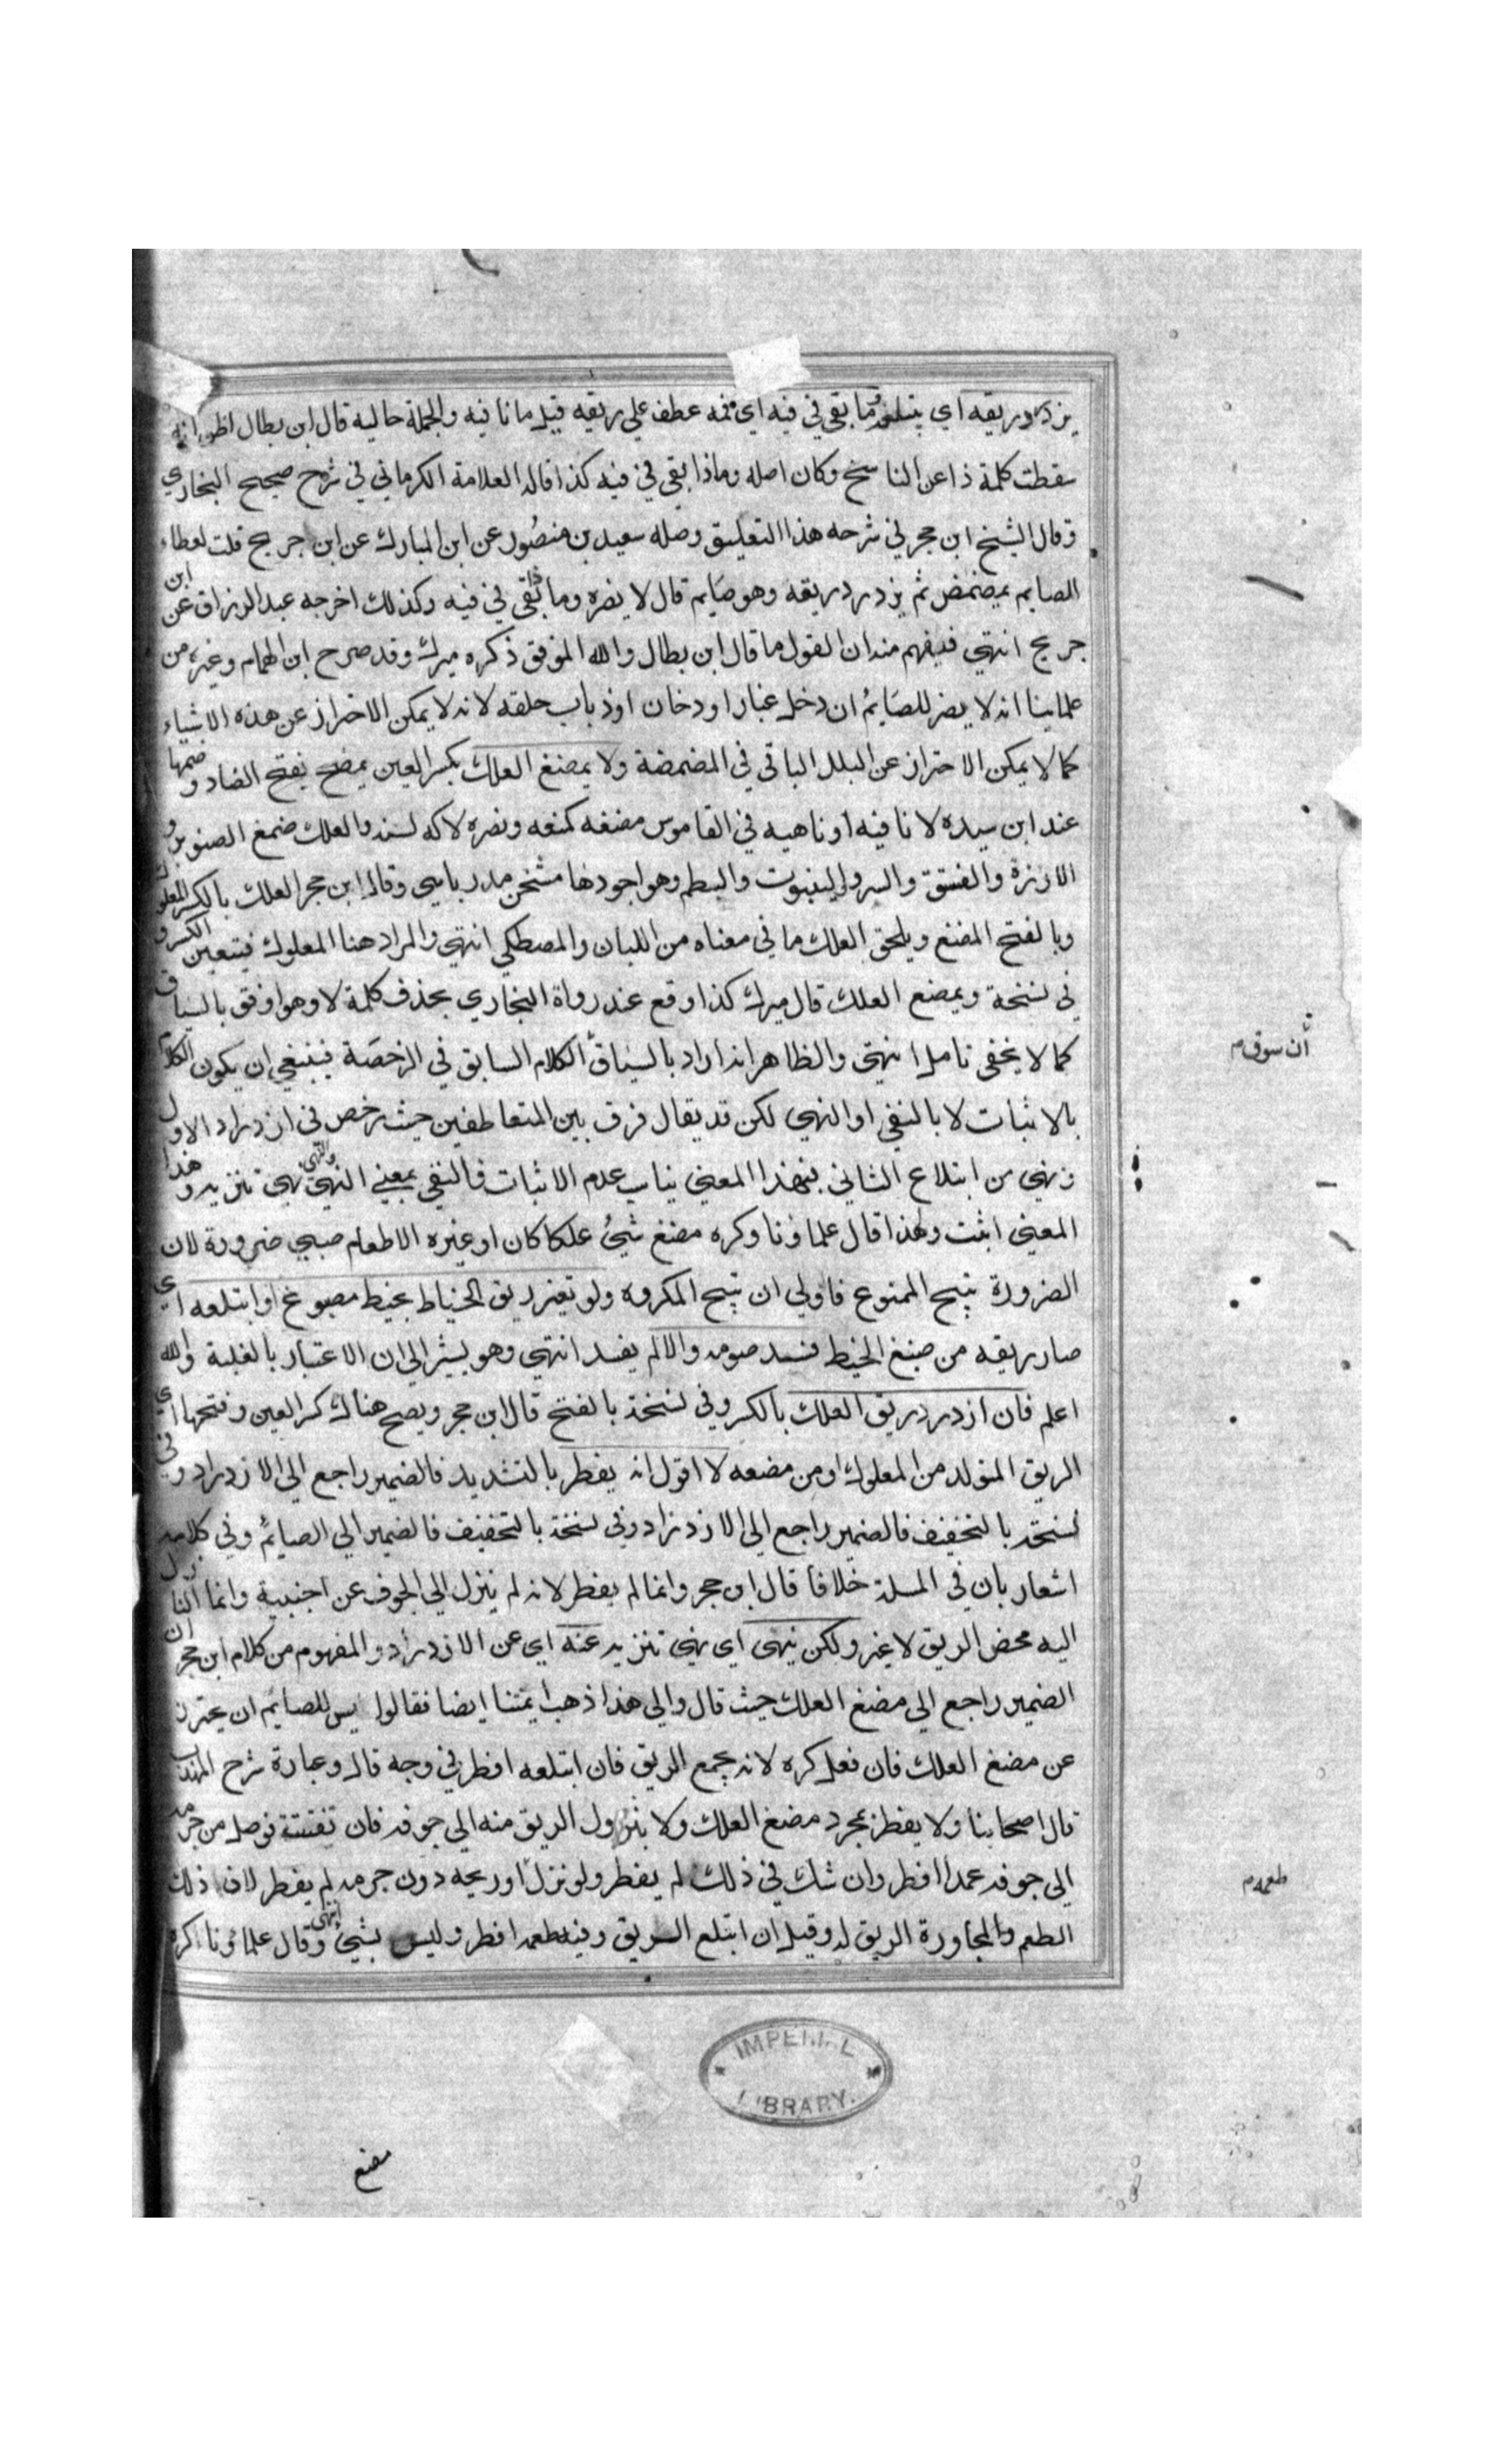 يزدرد ريقه اي يبتلعه وما بقي في فيه اي فمه عطف علي ريقه قيل ما نافيه والجملة حالية قال ابن بطال اظن انه
سقطت كلمة ذا عن الناسخ وكان اصله وماذا بقي في فيه كذا قاله العلامة الكرماني في شرح صحيح البخاري
وقال الشيخ ابن حجر في شرحه هذا التعليق وصله سعيد بن منصور عن ابن المبارك عن ابن جريج قلت لعطاء
الصايم يمضمض ثم يزدرد ريقه وهو صايم قال لا يضره وماذا بقي في فيه وكذلك اخرجه عبد الرزاق عن ابن
جريج انتهي فيفهم منه ان القول ما قال ابن بطال والله الموفق ذكره ميرك وقد صرح ابن الهمام وغيره من
علماينا انه لا يضر للصايم ان دخل غبار او دخان او ذباب حلقه لانه لا يمكن الاحتراز عن هذه الاشياء
كما لا يمكن الاحتراز عن البلل الباقي في المضمضة ولا يمضغ العلك بكسر العين يمضح بفتح الضاد وضمها
عند ابن سيده لا نافيه او ناهيه في القاموس مضغه كمنعه ونصره لاكه لسنه والعلك ضمغ الصنوبر و
الارزة والفستق والسرو والينبوت والبطم وهو اجودها مسخن مدر باهي وقال ابن حجر العلك بالكسر المعلوك
وبالفتح المضغ ويلحق العلك ما في معناه من اللبان والمصطكي انتهي والمراد هنا المعلوك فيتعين الكسر و
في نسخة ويمضع العلك قال ميرك كذا وقع عند رواة البخاري بحذف كلمة لا وهو اوفق بالسياق
كما لا يخفي تامل انتهي والظاهر انه اراد بالسياق الكلام السابق في الرخصة فينبغي ان يكون الكلام
أن سوق م
بالاثبات لا بالنفي او النهي لكن قد يقال فرق بين المتعاطفين حيث رخص في ازدراد الاول
ونهي من ابتلاع الثاني فبهذا المعني يناسب عدم الاثبات فالنفي بمعني النهي والنهي نهي تنزيه وهذا
المعني اثبت ولهذا قال علماؤنا وكره مضغ شيئ علكا كان او غيره الا طعام صبي ضرورة لان
الضرورة تبيح الممنوع فاولي ان تبيح المكروه ولو تغير ريق الخياط بخيط مصبوغ او ابتلعه اي
صار ريقه من صبغ الخيط فسد صومه والا لم يفسد انتهي وهو يشير الي ان الاعتبار بالغلبة والله
اعلم فان ازدرد ريق العلك بالكسر وفي نسخة بالفتح قال ابن حجر ويصح هناك كسر العين وفتحها اي
الريق المتولد من المعلوك او من مضعه لا اقول انه يفطر بالتشديد فالضمير راجع الي الازدراد وفي
نسخة بالتخفيف فالضمير راجع الي الازدراد وفي نسخة بالتخفيف فالضمير الي الصايم وفي كلامه
اشعار بان في المسلة خلافا قال ابن حجر وانما لم يفطر لانه لم ينزل الي الجوف عن اجنبية وانما النازل
اليه محض الريق لا غير ولكن ينهي اي نهي تنزيه عنه اي عن الازدراد والمفهوم من كلام ابن حجر ان
الضمير راجع الي مضغ العلك حيث قال والي هذا ذهب ايمتنا ايضا فقالوا يسن للصايم ان يحترز
عن مضغ العلك فان فعل كره لانه يجمع الريق فان ابتلعه افطر في وجه قال وعبارة شرح المهذب
قال اصحابنا ولا يفطر بمجرد مضغ العلك ولا بنزول الريق منه الي جوفه فان تفتتة فوصل من جرمه
الي جوفه عمدا افطر وان شك في ذلك لم يفطر ولو نزل او ريحه دون جرمه لم يفطر لان ذلك
طعمه م
الطعم والمجاورة الريق له وقيل ان ابتلع الريق وفيه طعمه افطر وليس بشيئ انتهي وقال علماؤنا كره
IMPERIAL
LIBRARY.
مضغ